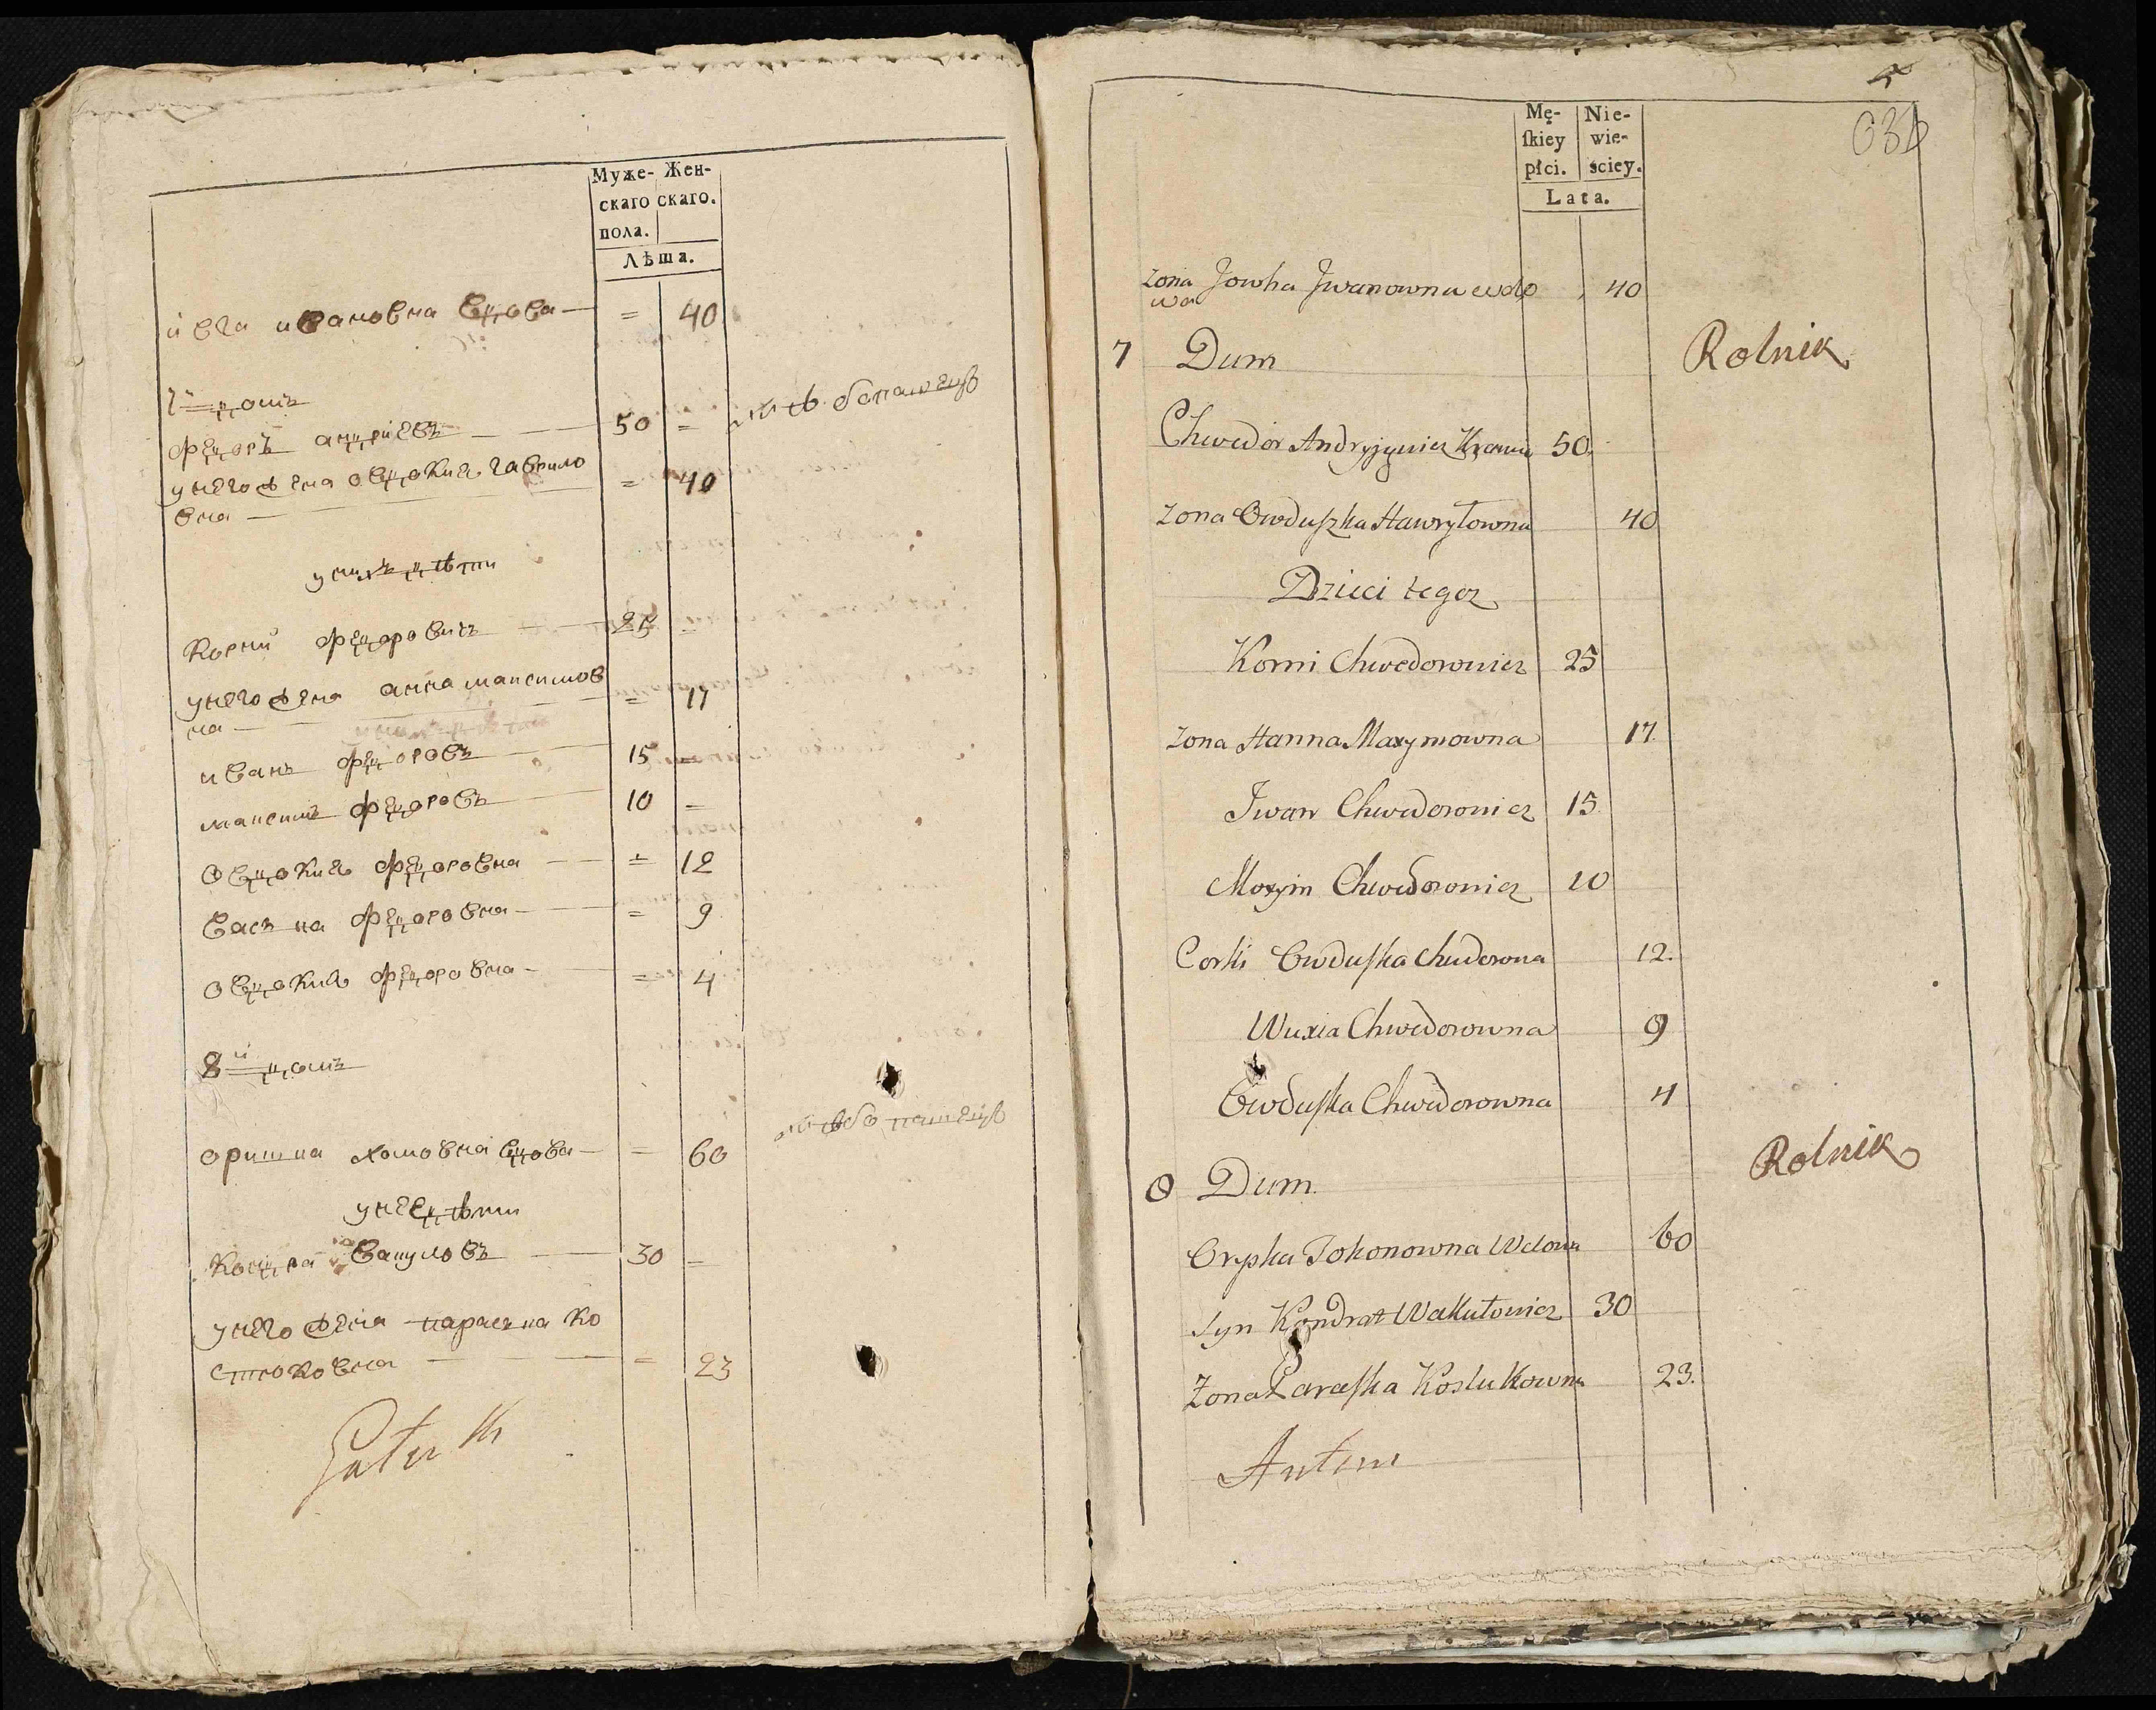 Муже- Жен-
скаго скаго.
пола.
Лѣта.
ивга ивановна вдова = 40
7й домъ
федоръ андриевъ 50 =
унего жена овдокия гаврило
вна = 40
унихъ дѣти
Корний федоровичъ 25 =
унего жена анна максимов
на = 17
иванъ федоровъ 15
максимъ федоровъ 10 =
Овдокия федоровна = 12
Васъка федоровна = 9
Овдокия федоровна = 4
8й домъ
оришка хомовна вдова = 60
унее дѣти
Кондрат вакуловъ 30 =
унего жена параска Ко
стюковна = 23
Mę- Nie-
ſkiey wie-
płci. sciey.
Lata.
zona Jowha Jwanowna wdo 40
wa
7 Dum Rolnik
Chwedor Andryjewicz 50
zona Owduszka Hawryłowna 40
Dzieci tegoz
Korni Chwedorowicz 25
zona Hanna Maxymowna 17.
Iwan Chwedorowicz 15
Maxym Chwedorowicz 10
Corki Owduſka Chwedorowna 12.
Wuxia Chwedorowna 9
Owduſka Chwedorowna 4
8 Dum. Rolnik
Oryſka Wdowa 60
Syn Kondrat Wakułowicz 30
Zona Paraſka Kostukowna 23.